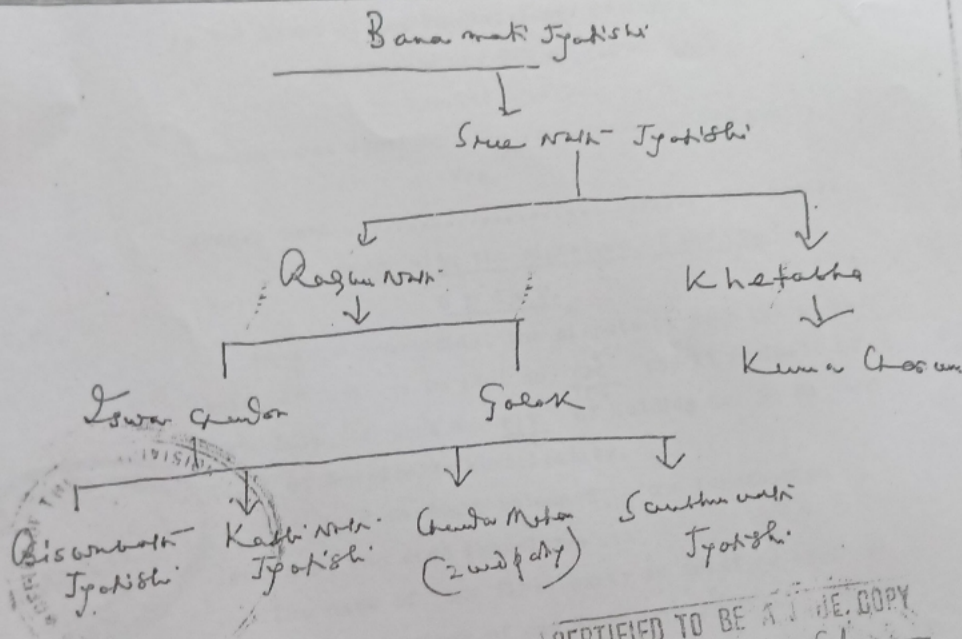 Banamali Jyotishi
Sree Nath Jyotishi
Raghu Nath
Khetabha
Iswar Chandra
Golak
Biswanath Jyotishi
Kashi Nath Jyotishi
Chandra Mohan
(2nd party)
Sambhunath Jyotishi
CERTIFIED TO BE A TRUE COPY